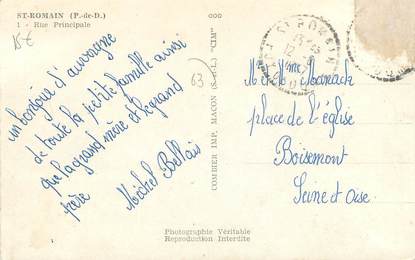 ST-ROMAIN (P.-de-D.)
1 - Rue Principale
un bonjour d'auvergne
de toute la petite famille ainsi
que la grand mère et le grand
père
Michel Bellais
63
COMBIER IMP. MACON (S.-&-L.) "CIM"
M et Mme Manach
place de l'église
Boisemont
Seine et Oise
Photographie Véritable
Reproduction Interdite